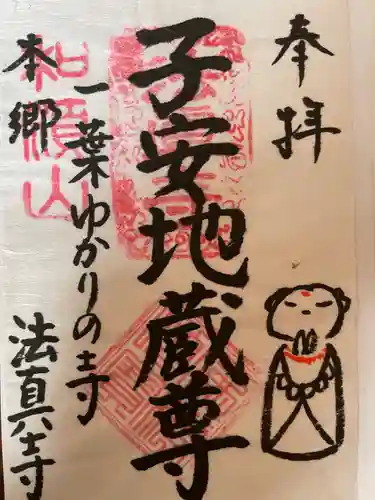 奉拝
子安地蔵尊
一葉ゆかりの寺
本郷
法真寺
和順山